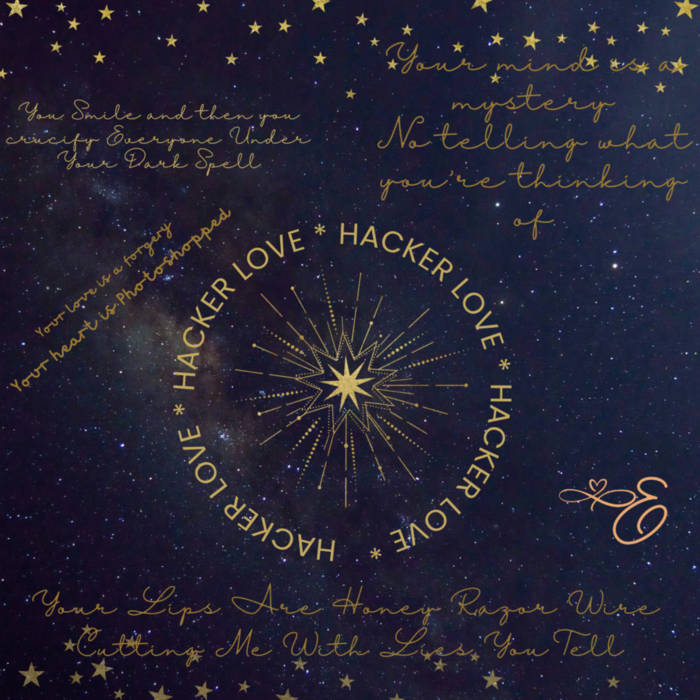 Your mind is a
mystery
No telling what
you're thinking
of
You Smile and then you
crucify Everyone Under
Your Dark Spell
Your love is a forgery
Your heart is Photoshopped
HACKER LOVE * HACKER LOVE * HACKER LOVE * HACKER LOVE * HACKER LOVE *
E
Your Lips Are Honey Razor Wire
Cutting Me With Lies You Tell